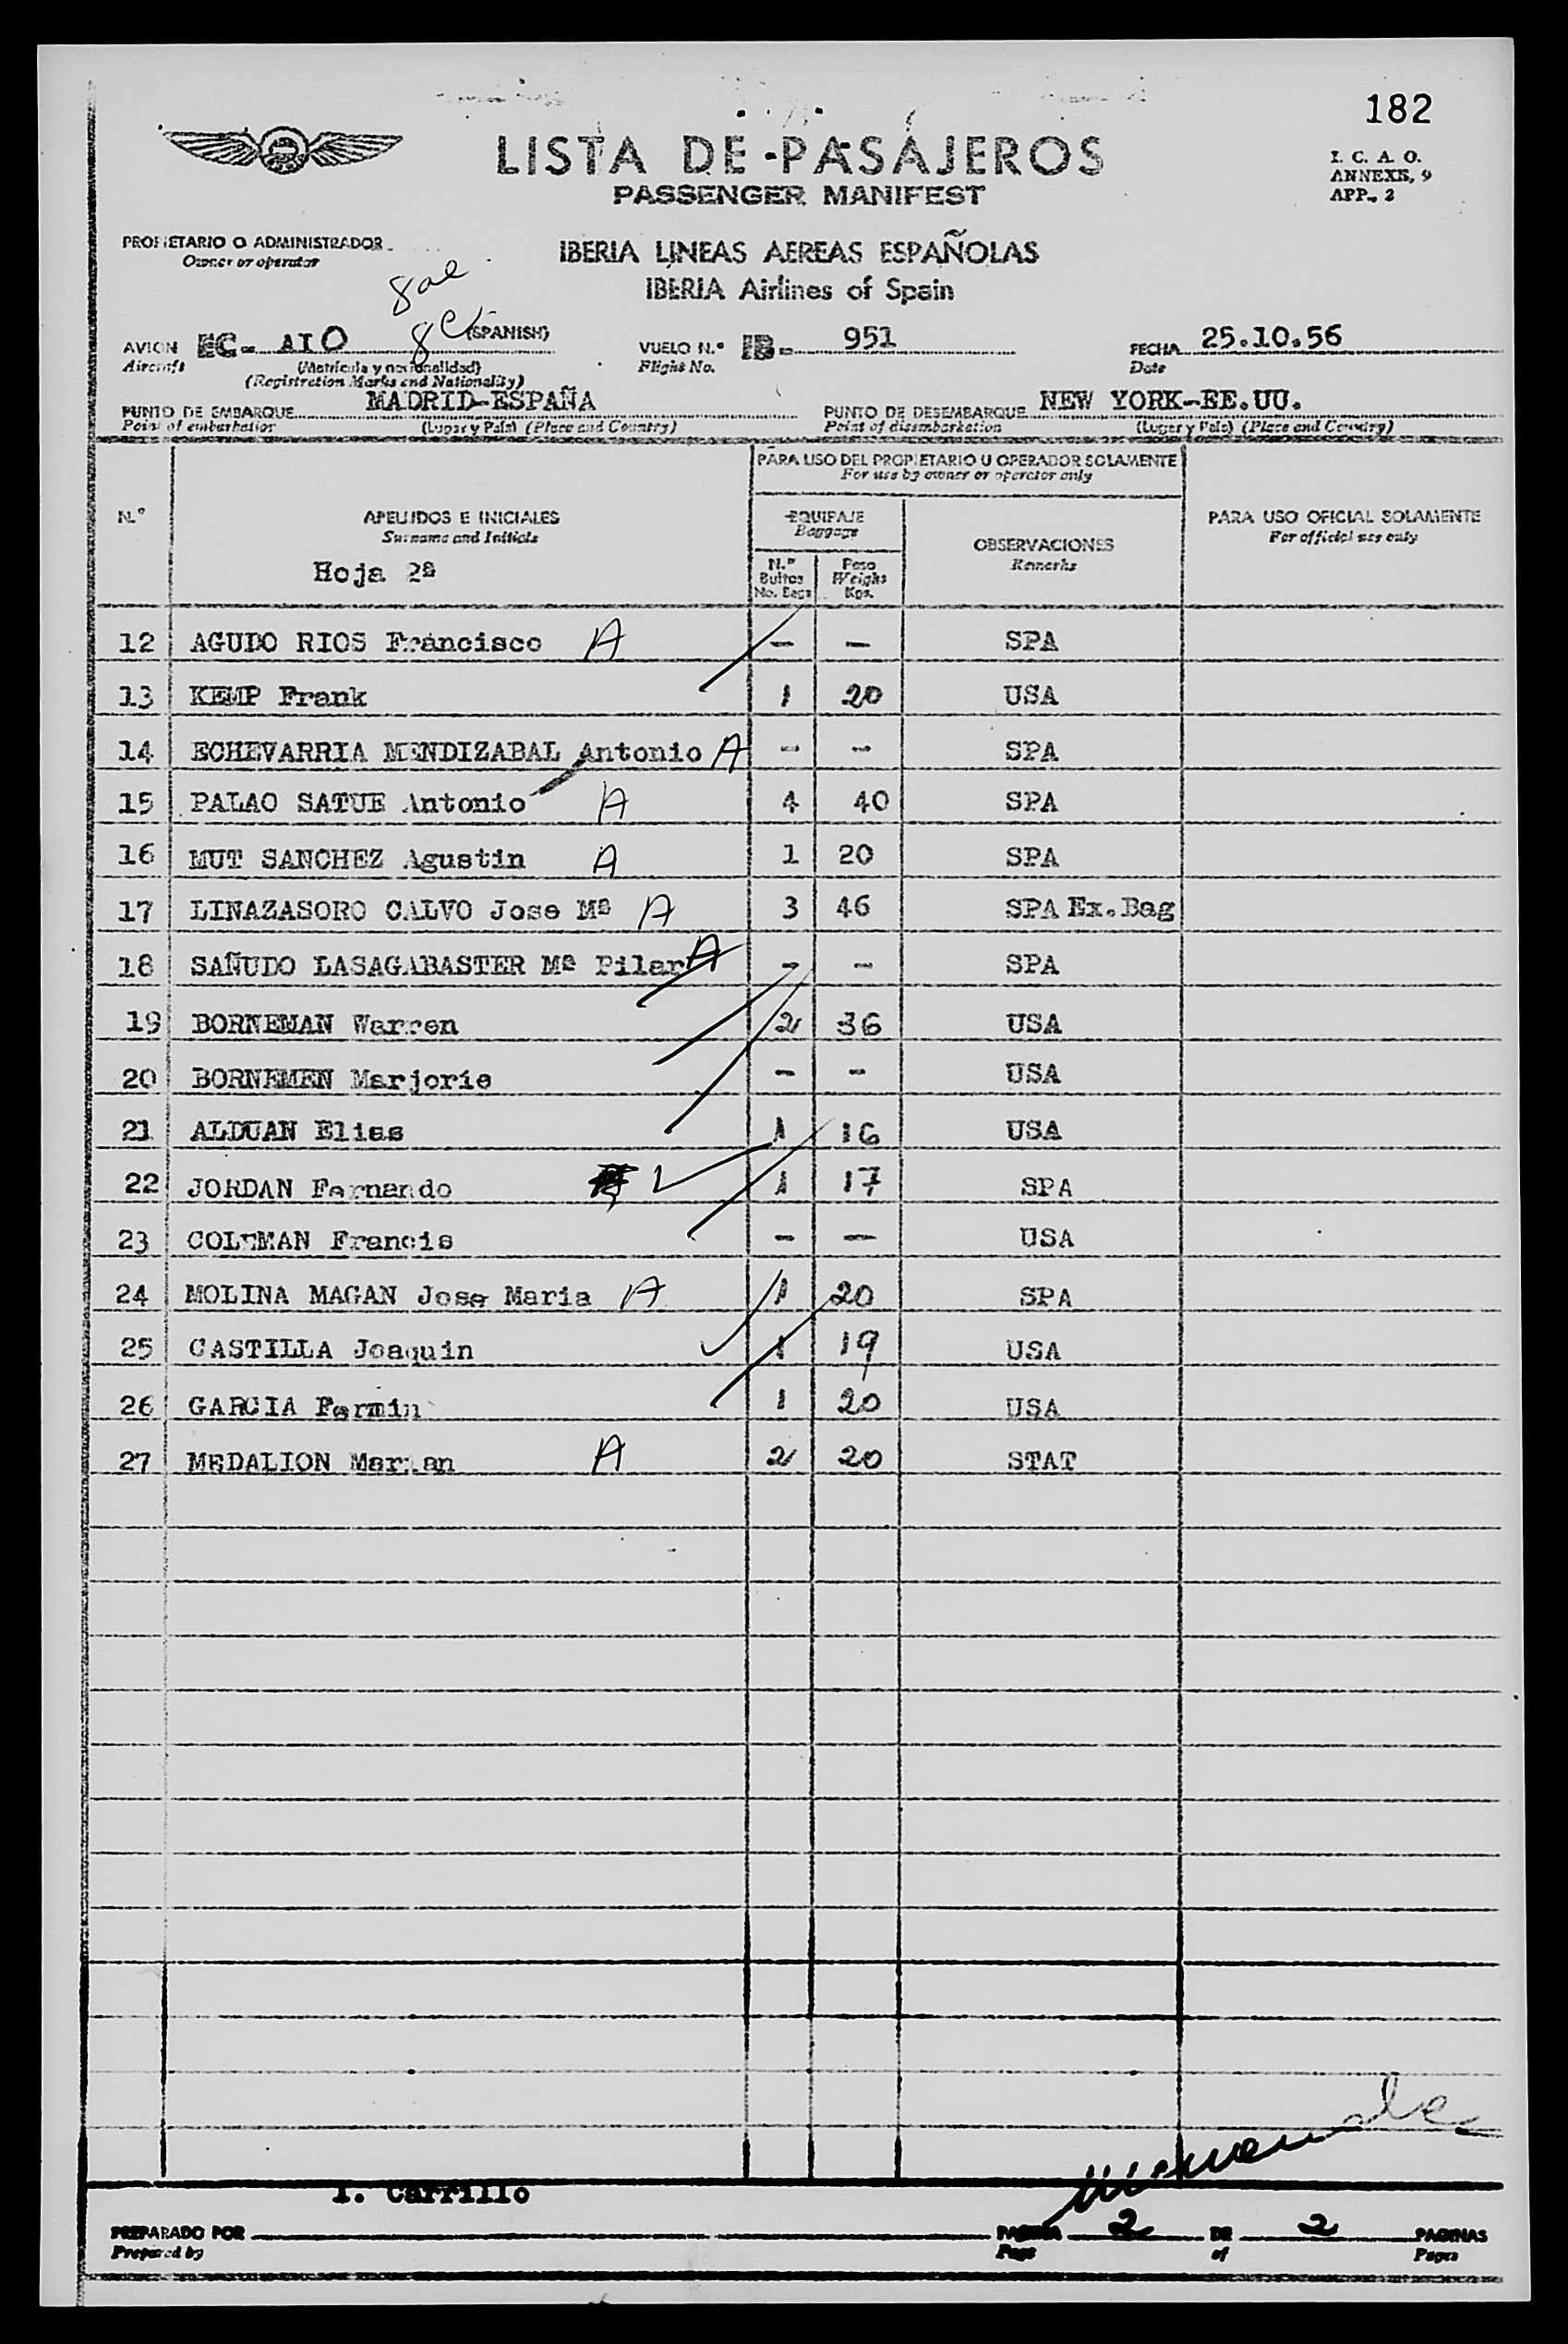 182
LISTA DE PASAJEROS
PASSENGER MANIFEST
I. C. A. O.
ANNEXE, 9
APP., 2
PROPIETARIO O ADMINISTRADOR
Owner or operator
IBERIA LINEAS AEREAS ESPAÑOLAS
IBERIA Airlines of Spain
AVION EC- AIO (SPANISH) VUELO N.º IB- 951 FECHA 25.10.56
Aircraft (Matrícula y nacionalidad) Flight No. Date
(Registration Marks and Nationality)
PUNTO DE EMBARQUE MADRID-ESPAÑA PUNTO DE DESEMBARQUE NEW YORK-EE.UU.
Point of embarkation (Lugar y País) (Place and Country) Point of disembarkation (Lugar y País) (Place and Country)
PARA USO DEL PROPIETARIO U OPERADOR SOLAMENTE
For use by owner or operator only
N.º APELLIDOS E INICIALES EQUIPAJE OBSERVACIONES PARA USO OFICIAL SOLAMENTE
Surname and Initials Baggage Remarks For official use only
Hoja 2ª N.º Bultos Peso
No. Bags Weight Kgs.
12 AGUDO RIOS Francisco A - - SPA
13 KEMP Frank 1 20 USA
14 ECHEVARRIA MENDIZABAL Antonio A - - SPA
15 PALAO SATUE Antonio A 4 40 SPA
16 MUT SANCHEZ Agustin A 1 20 SPA
17 LINAZASORO CALVO Jose Mª A 3 46 SPA Ex.Bag
18 SAÑUDO LASAGABASTER Mª Pilar A - - SPA
19 BORNEMAN Warren 2 36 USA
20 BORNEMEN Marjorie - - USA
21 ALDUAN Elias 1 16 USA
22 JORDAN Fernando 1 17 SPA
23 COLEMAN Francis - - USA
24 MOLINA MAGAN Jose Maria A 1 20 SPA
25 CASTILLA Joaquin 1 19 USA
26 GARCIA Fermin 1 20 USA
27 MEDALION A 2 20 STAT
I. Carrillo
PREPARADO POR PAGINA 2 DE 2 PAGINAS
Prepared by Page of Pages